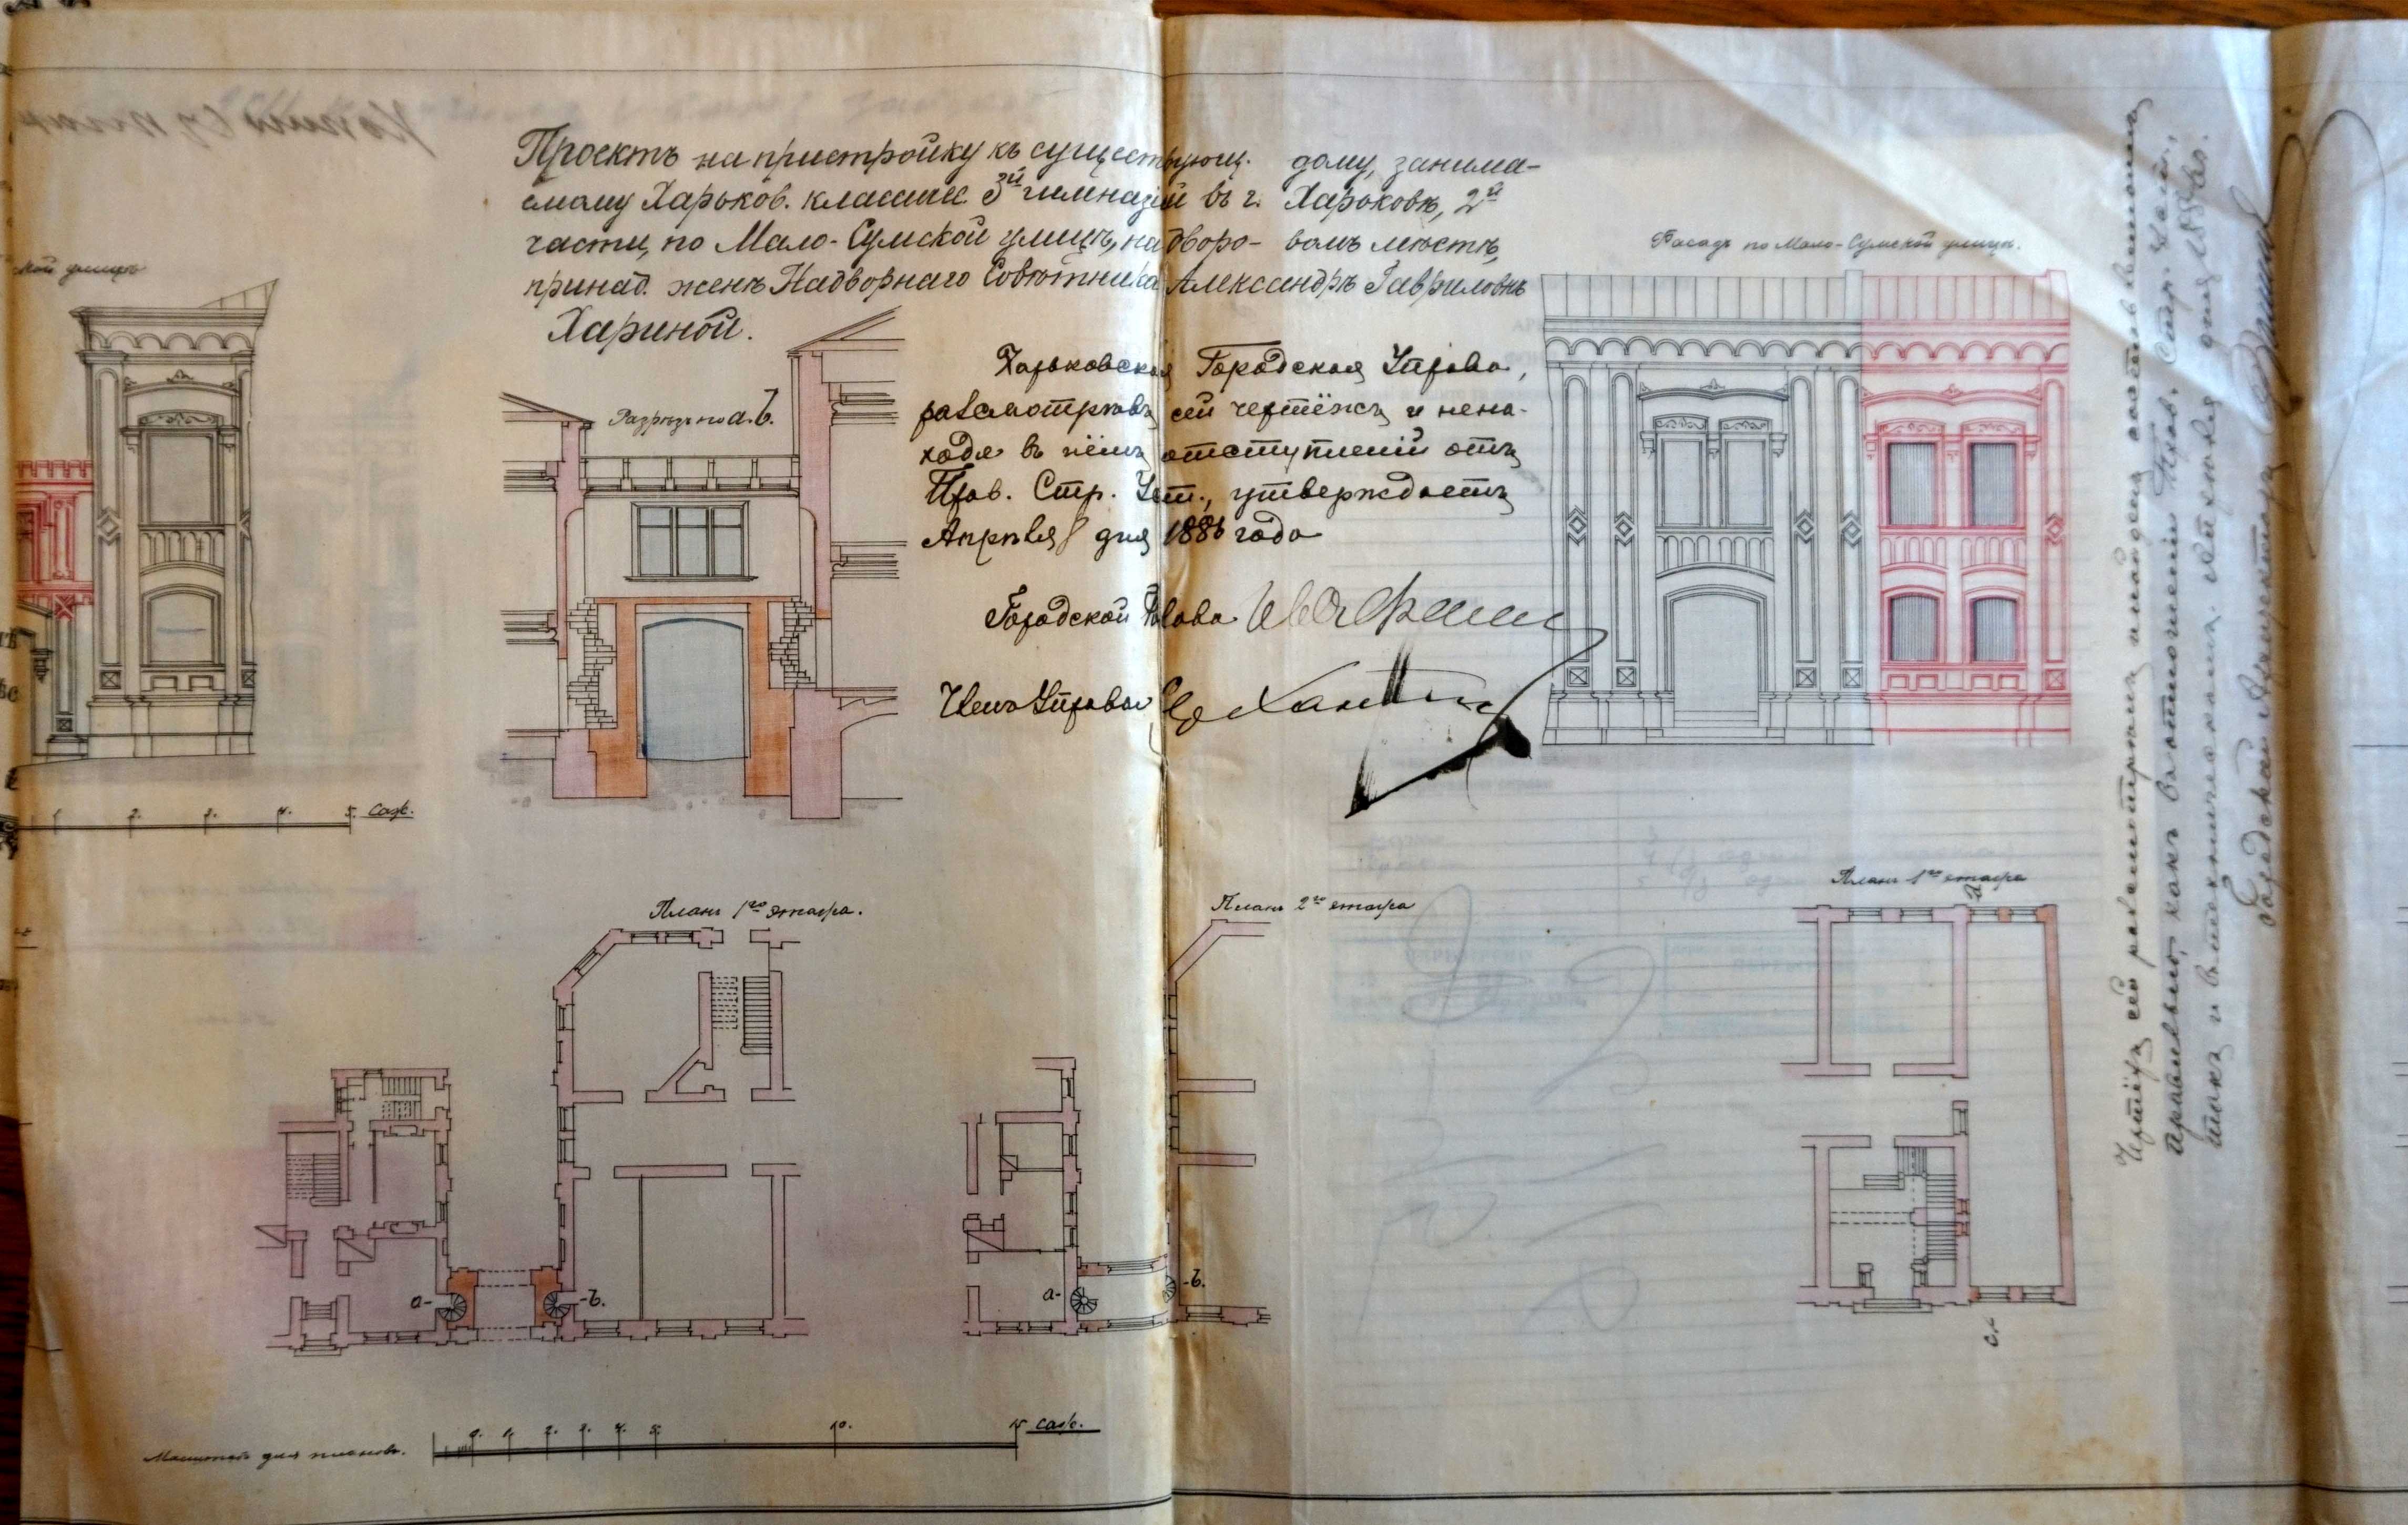 Проектъ на пристройку къ существующ. дому, занима-
емому Харьков. классич. 3й гимназіей въ г. Харьковѣ, 2й
части, по Мало-Сумской улицѣ, на дворо- вомъ мѣстѣ,
принад. женѣ Надворнаго Совѣтника Александрѣ Гавриловнѣ
Хариной.
Харьковская Городская Управа,
разсмотрѣвъ сей чертёжъ и нена-
ходя въ нёмъ отступленій отъ
Прав. Стр. Уст., утверждаетъ
Апрѣля 8 дня 1886 года
Городской Голова
Членъ Управы
кой улицѣ
Разрѣзъ по а.b.
Фасадъ по Мало-Сумской улицѣ.
1. 2. 3. 4. 5. саж.
Планъ 1го этажа.
Планъ 2го этажа
Планъ 1го этажа
а- -b.
а- -b.
Масштабъ для плановъ.
0. 1. 2. 3. 4. 5. 10. 15 саж.
Чертёжъ сей разсматривалъ и нахожу составленнымъ
правильно, какъ въ отношеніи Прав. Стр. Уст.,
такъ и въ техническомъ. Апрѣля дня 1886 го.
Городской Архитекторъ